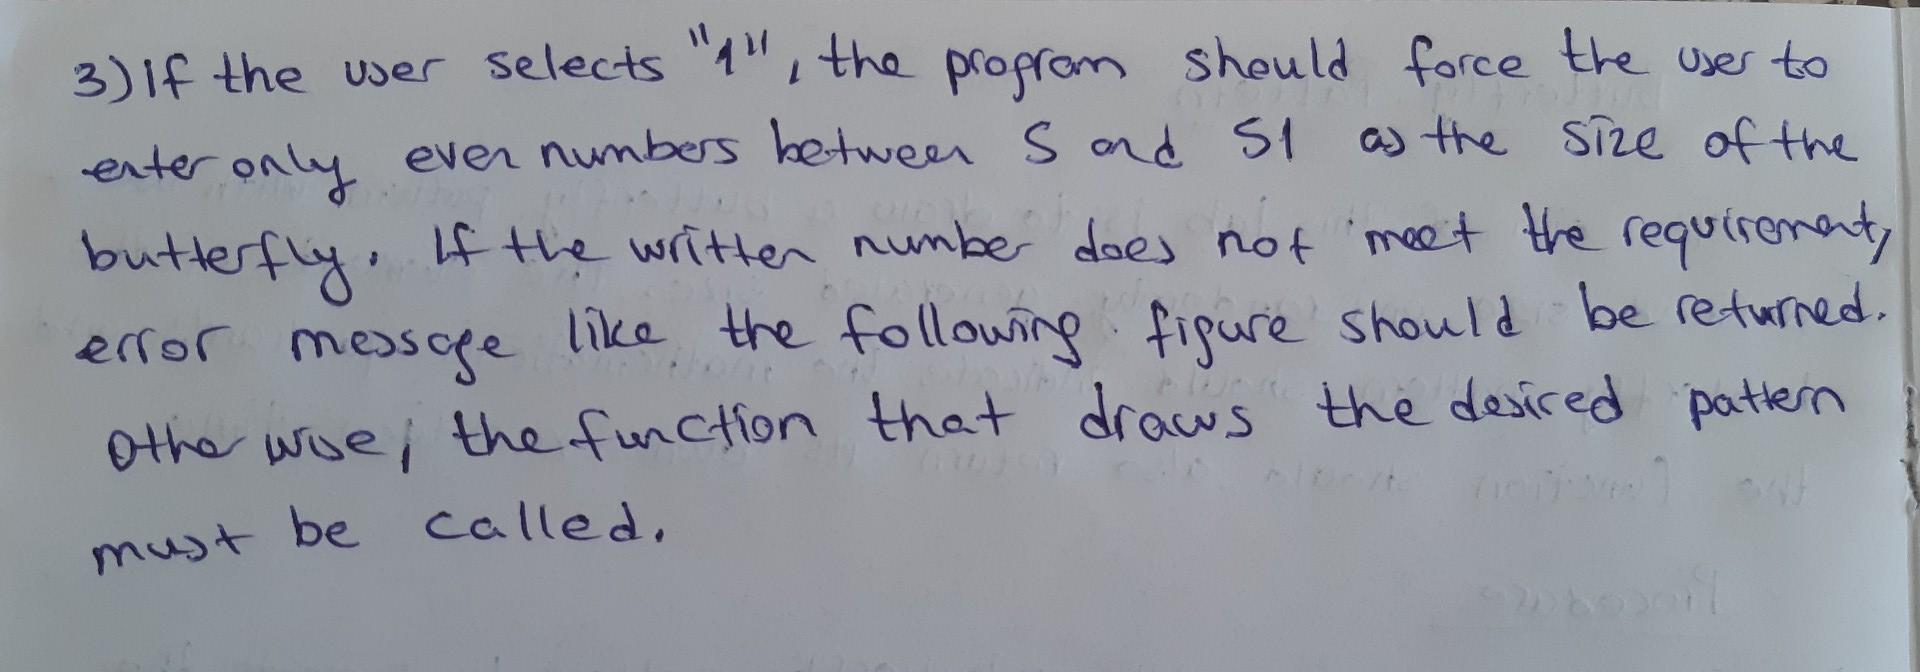 3) If the user selects "1", the program should force the user to
enter only even numbers between 5 and 51 as the size of the
butterfly. If the written number does not meet the requirement,
error message like the following figure should be returned.
Otherwise, the function that draws the desired pattern
must be called.